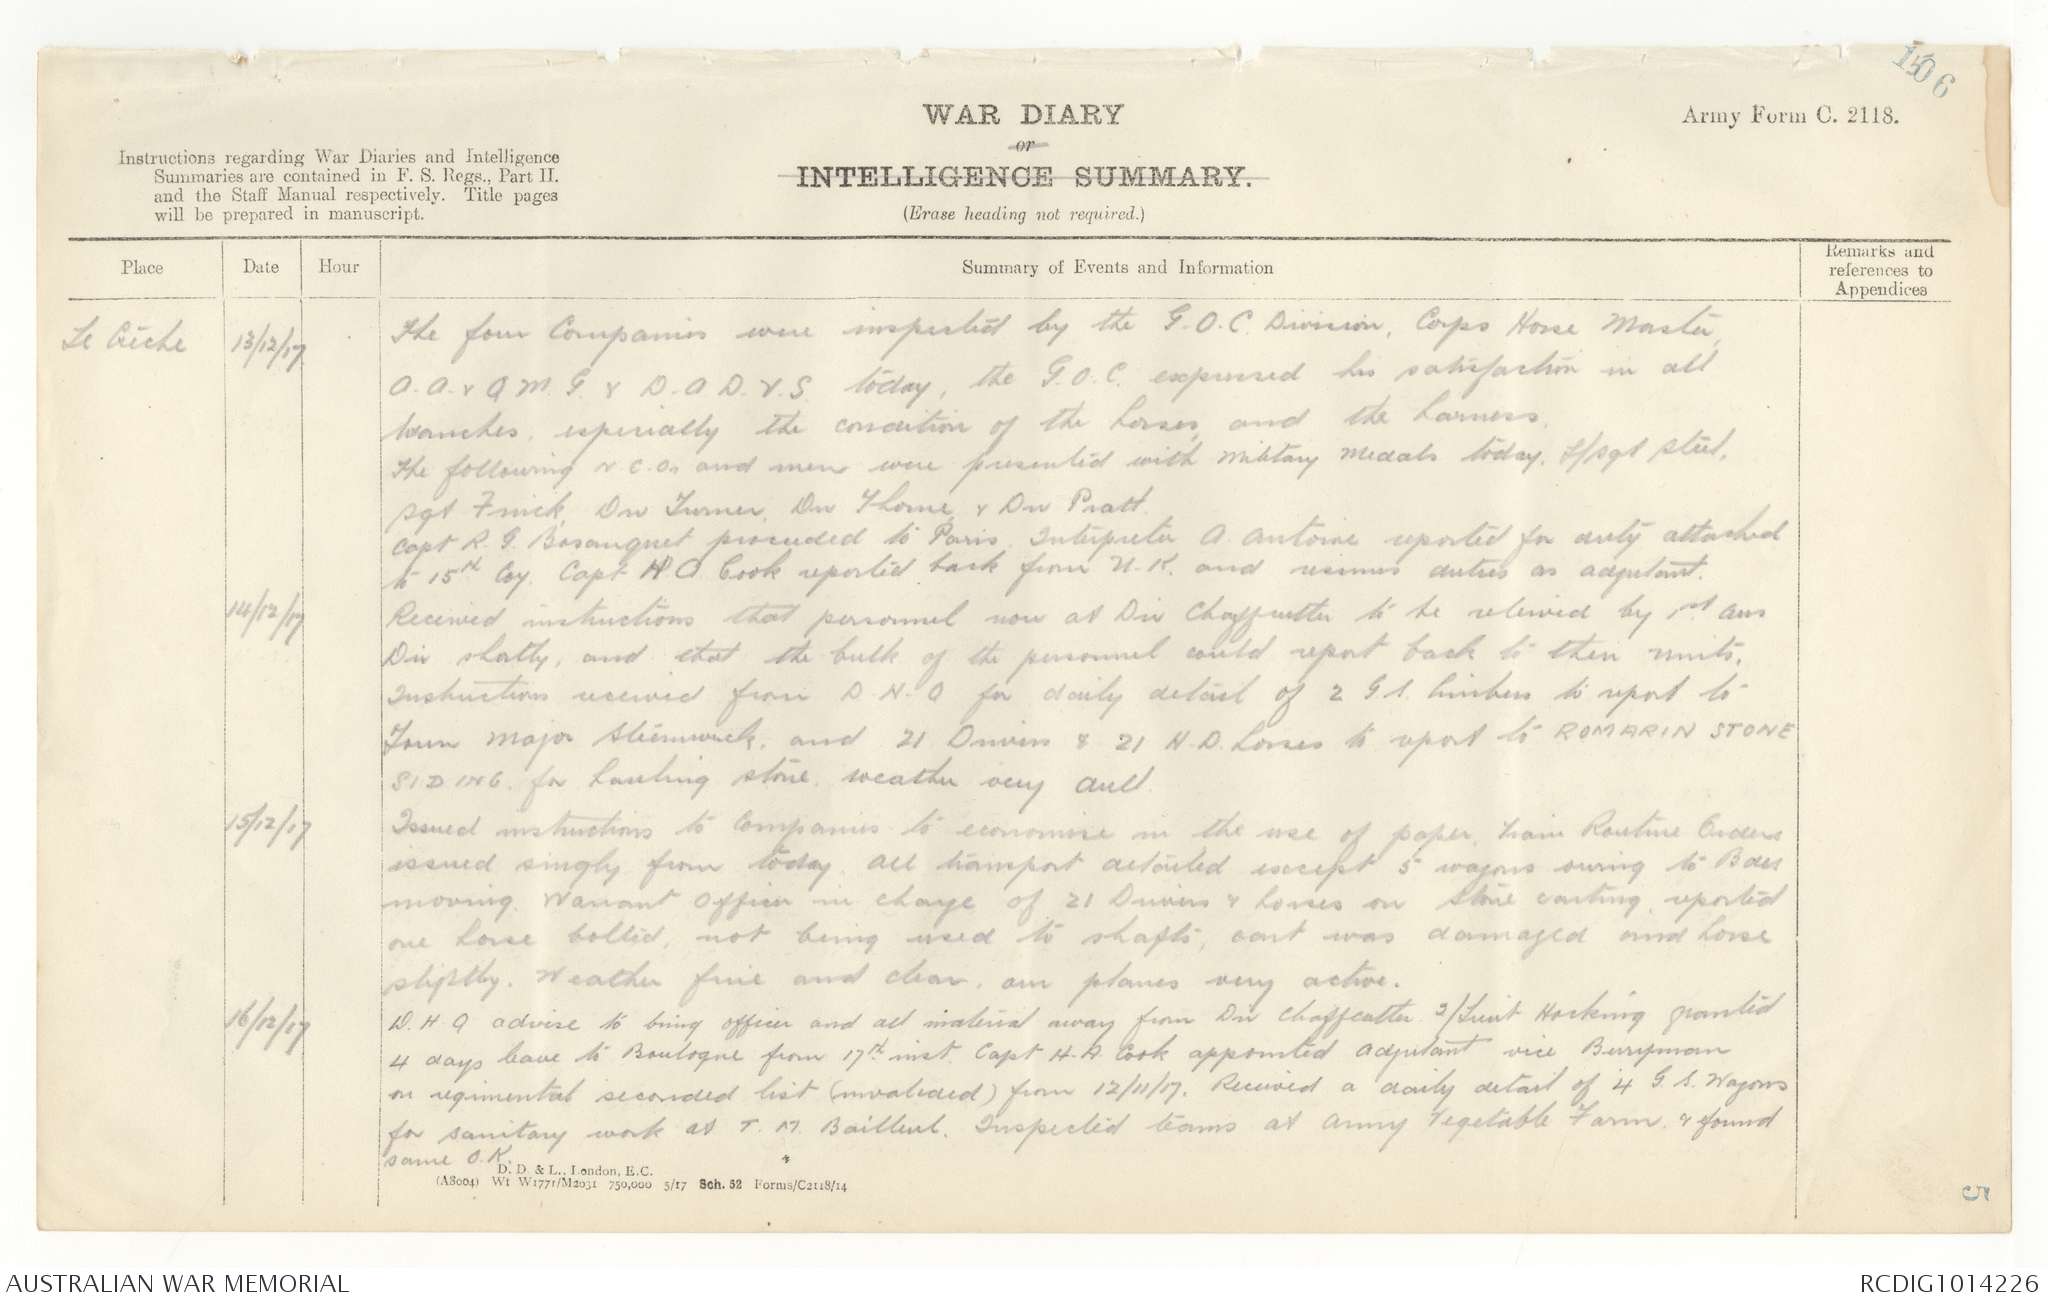 1506
WAR DIARY
or
INTELLIGENCE SUMMARY.
(Erase heading not required.)
Army Form C. 2118.
Instructions regarding War Diaries and Intelligence
Summaries are contained in F. S. Regs., Part II.
and the Staff Manual respectively. Title pages
will be prepared in manuscript.
Place
Date
Hour
Summary of Events and Information
Remarks and
references to
Appendices
Le Créche
13/12/17
The four Companies were inspected by the G.O.C. Division, Corps Horse Master,
A.A. & Q M. G. & D.A D.V.S. today, the G.O.C. expressed his satisfaction in all
branches, especially the condition of the horses, and the harness.
The following N.C.Os and men were presented with Military Medals today. S/Sgt Steel,
Sgt Dvr Turner, Dvr Thorne, & Dvr Pratt.
Capt R. G. Bosanquet proceeded to Paris. Interpreter A. Antoine reported for duty attached
to 15th Coy. Capt H A Cook reported back from U.K. and resumes duties as adjutant.
14/12/17
Received instructions that personnel now at Div Chaffcutter to be relieved by 1st Aus
Div shortly, and that the bulk of the personnel could report back to their units.
Instructions received from D.H.Q for daily detail of 2 G.S. limbers to report to
Town Major Steenwerck, and 21 Drivers & 21 H.D. horses to report to ROMARIN STONE
SIDING for hauling stone. Weather very dull.
15/12/17
Issued instructions to Companies to economise in the use of paper, Train Routine Orders
issued singly from today. All transport detailed except 5 wagons owing to Bdes
moving. Warrant Officer in charge of 21 Drivers & horses on stone carting, reported
one horse bolted, not being used to shafts, cart was damaged and horse
slightly. Weather fine and clear, our planes very active.
16/12/17
D.H.Q advise to bring officer and all material away from Div Chaffcutter. 2/Lieut Hocking granted
4 days leave to Boulogne from 17th inst. Capt H.A. Cook appointed adjutant vice Berryman
on regimental seconded list (invalided) from 12/11/17. Received a daily detail of 4 G.S. Wagons
for sanitary work at T. M. Bailleul. Inspected teams at Army Vegetable Farm & found
same O.K.
D. D. & L., London, E.C.
(A8004) Wt W1771/M2031 750,000 5/17 Sch. 52 Forms/C2118/14
5
AUSTRALIAN WAR MEMORIAL
RCDIG1014226